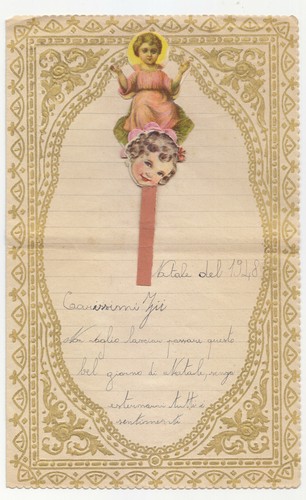 Natale del 1948
Carissimi Zii
Non voglio lasciar passare questo
bel giorno di Natale senza
esternarvi tutto
sentimenti